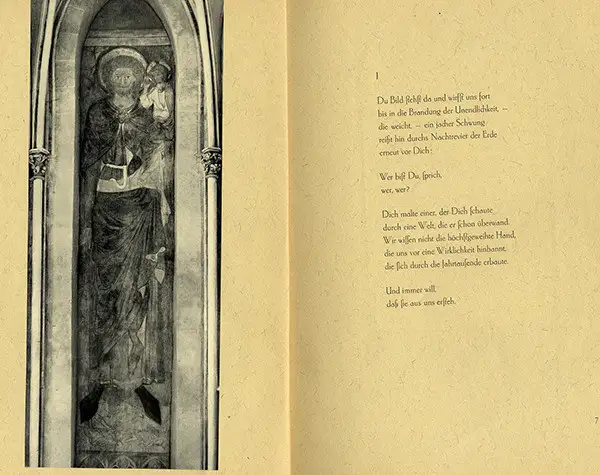 I
Du Bild stehst da und wirfst uns fort
bis in die Brandung der Unendlichkeit, —
die weicht, — ein jäher Schwung
reißt hin durchs Nachtrevier der Erde
erneut vor Dich:
Wer bist Du, sprich,
wer, wer?
Dich malte einer, der Dich schaute
durch eine Welt, die er schon überwand.
Wir wissen nicht die höchstgeweihte Hand,
die uns vor eine Wirklichkeit hinbannt,
die sich durch die Jahrtausende erbaute.
Und immer will,
daß sie aus uns ersteh.
7